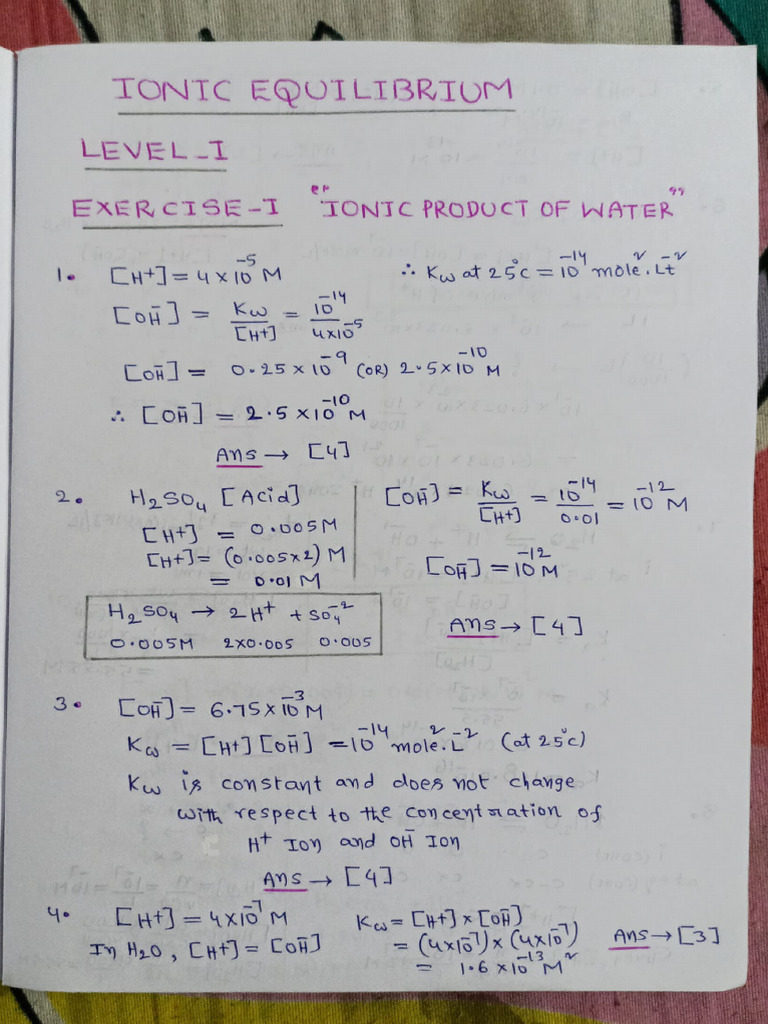 IONIC EQUILIBRIUM
LEVEL-I
EXERCISE-I "IONIC PRODUCT OF WATER"
1. [H+] = 4 x 10⁻⁵ M ∴ Kw at 25°C = 10⁻¹⁴ mole². Lt⁻²
[OH⁻] = Kw/[H+] = 10⁻¹⁴/4x10⁻⁵
[OH⁻] = 0.25 x 10⁻⁹ (OR) 2.5 x 10⁻¹⁰ M
∴ [OH⁻] = 2.5 x 10⁻¹⁰ M
Ans → [4]
2. H₂SO₄ [Acid]
[H+] = 0.005M
[H+] = (0.005x2) M
= 0.01 M
H₂SO₄ → 2H⁺ + SO₄⁻²
0.005M 2x0.005 0.005
[OH⁻] = Kw/[H+] = 10⁻¹⁴/0.01 = 10⁻¹² M
[OH⁻] = 10⁻¹² M
Ans → [4]
3. [OH⁻] = 6.75 x 10⁻³ M
Kw = [H+] [OH⁻] = 10⁻¹⁴ mole². L⁻² (at 25°C)
Kw is constant and does not change
with respect to the concentration of
H⁺ Ion and OH⁻ Ion
Ans → [4]
4. [H+] = 4x10⁻⁷ M
In H₂O, [H+] = [OH⁻]
Kw = [H+] x [OH⁻]
= (4x10⁻⁷) x (4x10⁻⁷)
= 1.6 x 10⁻¹³ M²
Ans → [3]